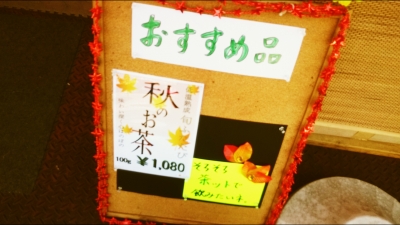 おすすめ品
秋のお茶
100g ¥1,080
そろそろ
ホットで
飲みたいネ